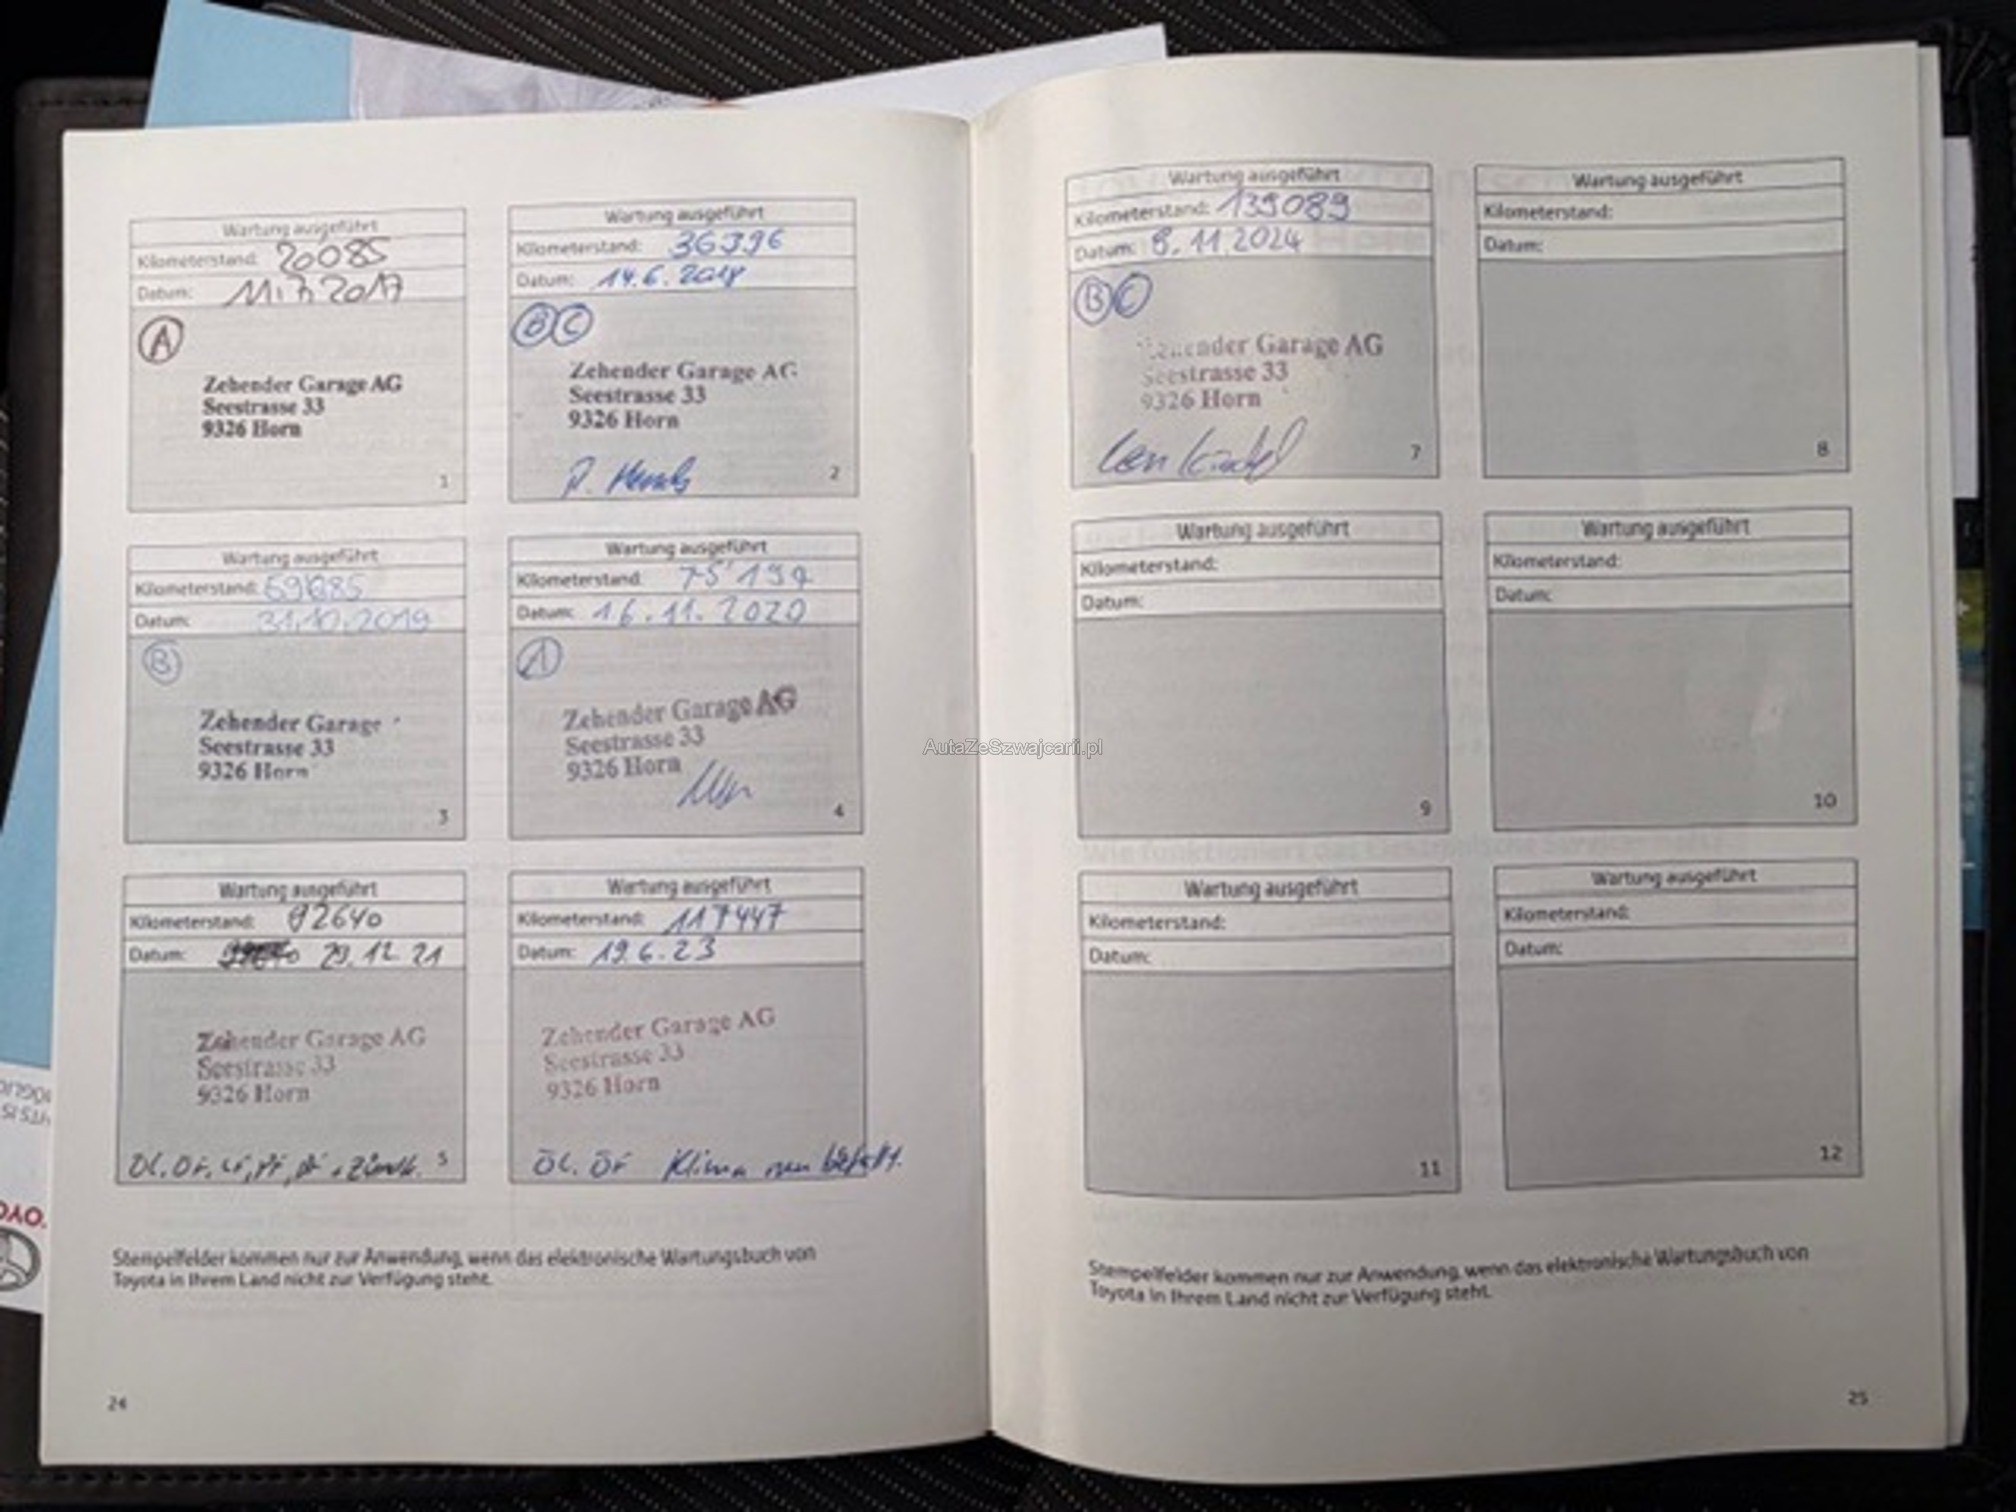 Wartung ausgeführt
Kilometerstand: 20085
Datum: 2017
A
Zehender Garage AG
Seestrasse 33
9326 Horn
1
Wartung ausgeführt
Kilometerstand: 36396
Datum: 14.6.2018
B C
Zehender Garage AG
Seestrasse 33
9326 Horn
2
Wartung ausgeführt
Kilometerstand:
Datum: 31.10.2019
B
Zehender Garage
Seestrasse 33
9326 Horn
3
Wartung ausgeführt
Kilometerstand: 75'197
Datum: 16.11.2020
A
Zehender Garage AG
Seestrasse 33
9326 Horn
4
Wartung ausgeführt
Kilometerstand: 92640
Datum: 29.12.21
Zehender Garage AG
Seestrasse 33
9326 Horn
ÖL. ÖF.
5
Wartung ausgeführt
Kilometerstand: 117447
Datum: 19.6.23
Zehender Garage AG
Seestrasse 33
9326 Horn
ÖL. ÖF Klima
Stempelfelder kommen nur zur Anwendung, wenn das elektronische Wartungsbuch von
Toyota in Ihrem Land nicht zur Verfügung steht.
24
Wartung ausgeführt
Kilometerstand: 139089
Datum: 8.11.2024
B C
Zehender Garage AG
Seestrasse 33
9326 Horn
7
Wartung ausgeführt
Kilometerstand:
Datum:
8
Wartung ausgeführt
Kilometerstand:
Datum:
9
Wartung ausgeführt
Kilometerstand:
Datum:
10
Wartung ausgeführt
Kilometerstand:
Datum:
11
Wartung ausgeführt
Kilometerstand:
Datum:
12
Stempelfelder kommen nur zur Anwendung, wenn das elektronische Wartungsbuch von
Toyota in Ihrem Land nicht zur Verfügung steht.
25
AutaZeSzwajcarii.pl